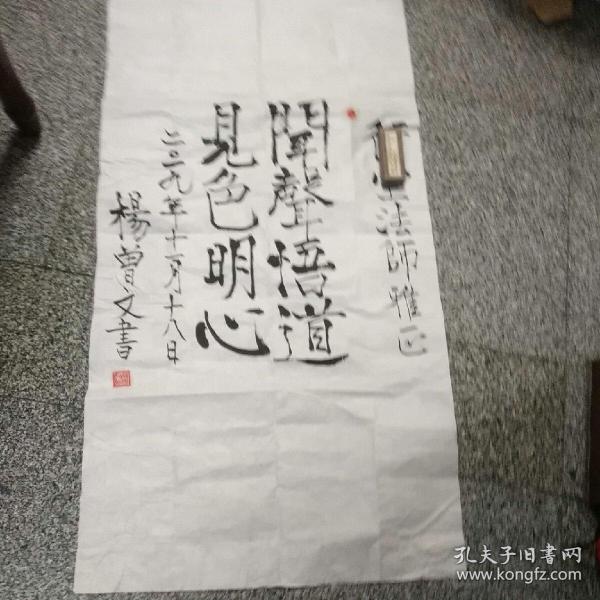 法師雅正
聞聲悟道
見色明心
二〇一九年十一月十八日
楊曾文書
孔夫子旧书网
www.kongfz.com